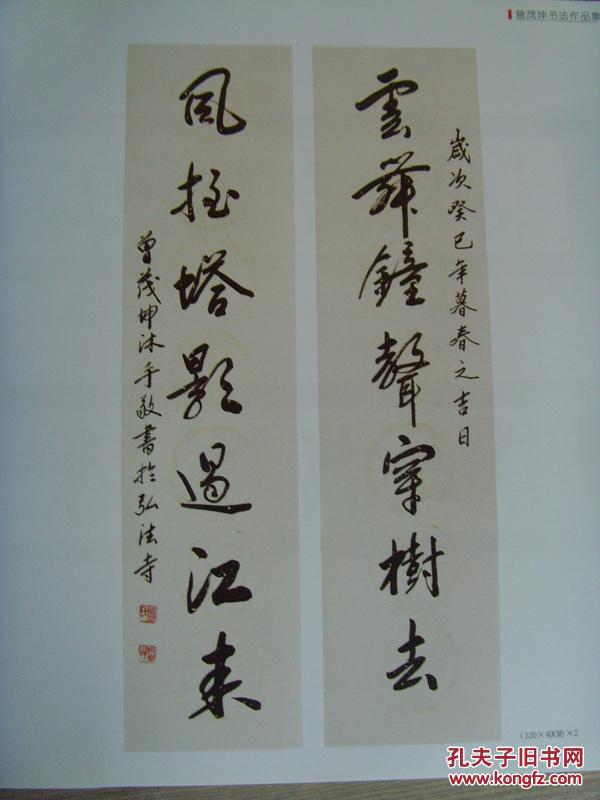 曾茂坤书法作品集
歲次癸巳年暮春之吉日
雲舞鐘聲穿樹去
風塔影過江来
曾茂坤沐手敬書於弘法寺
(120×40CM)×2
孔夫子旧书网
www.kongfz.com